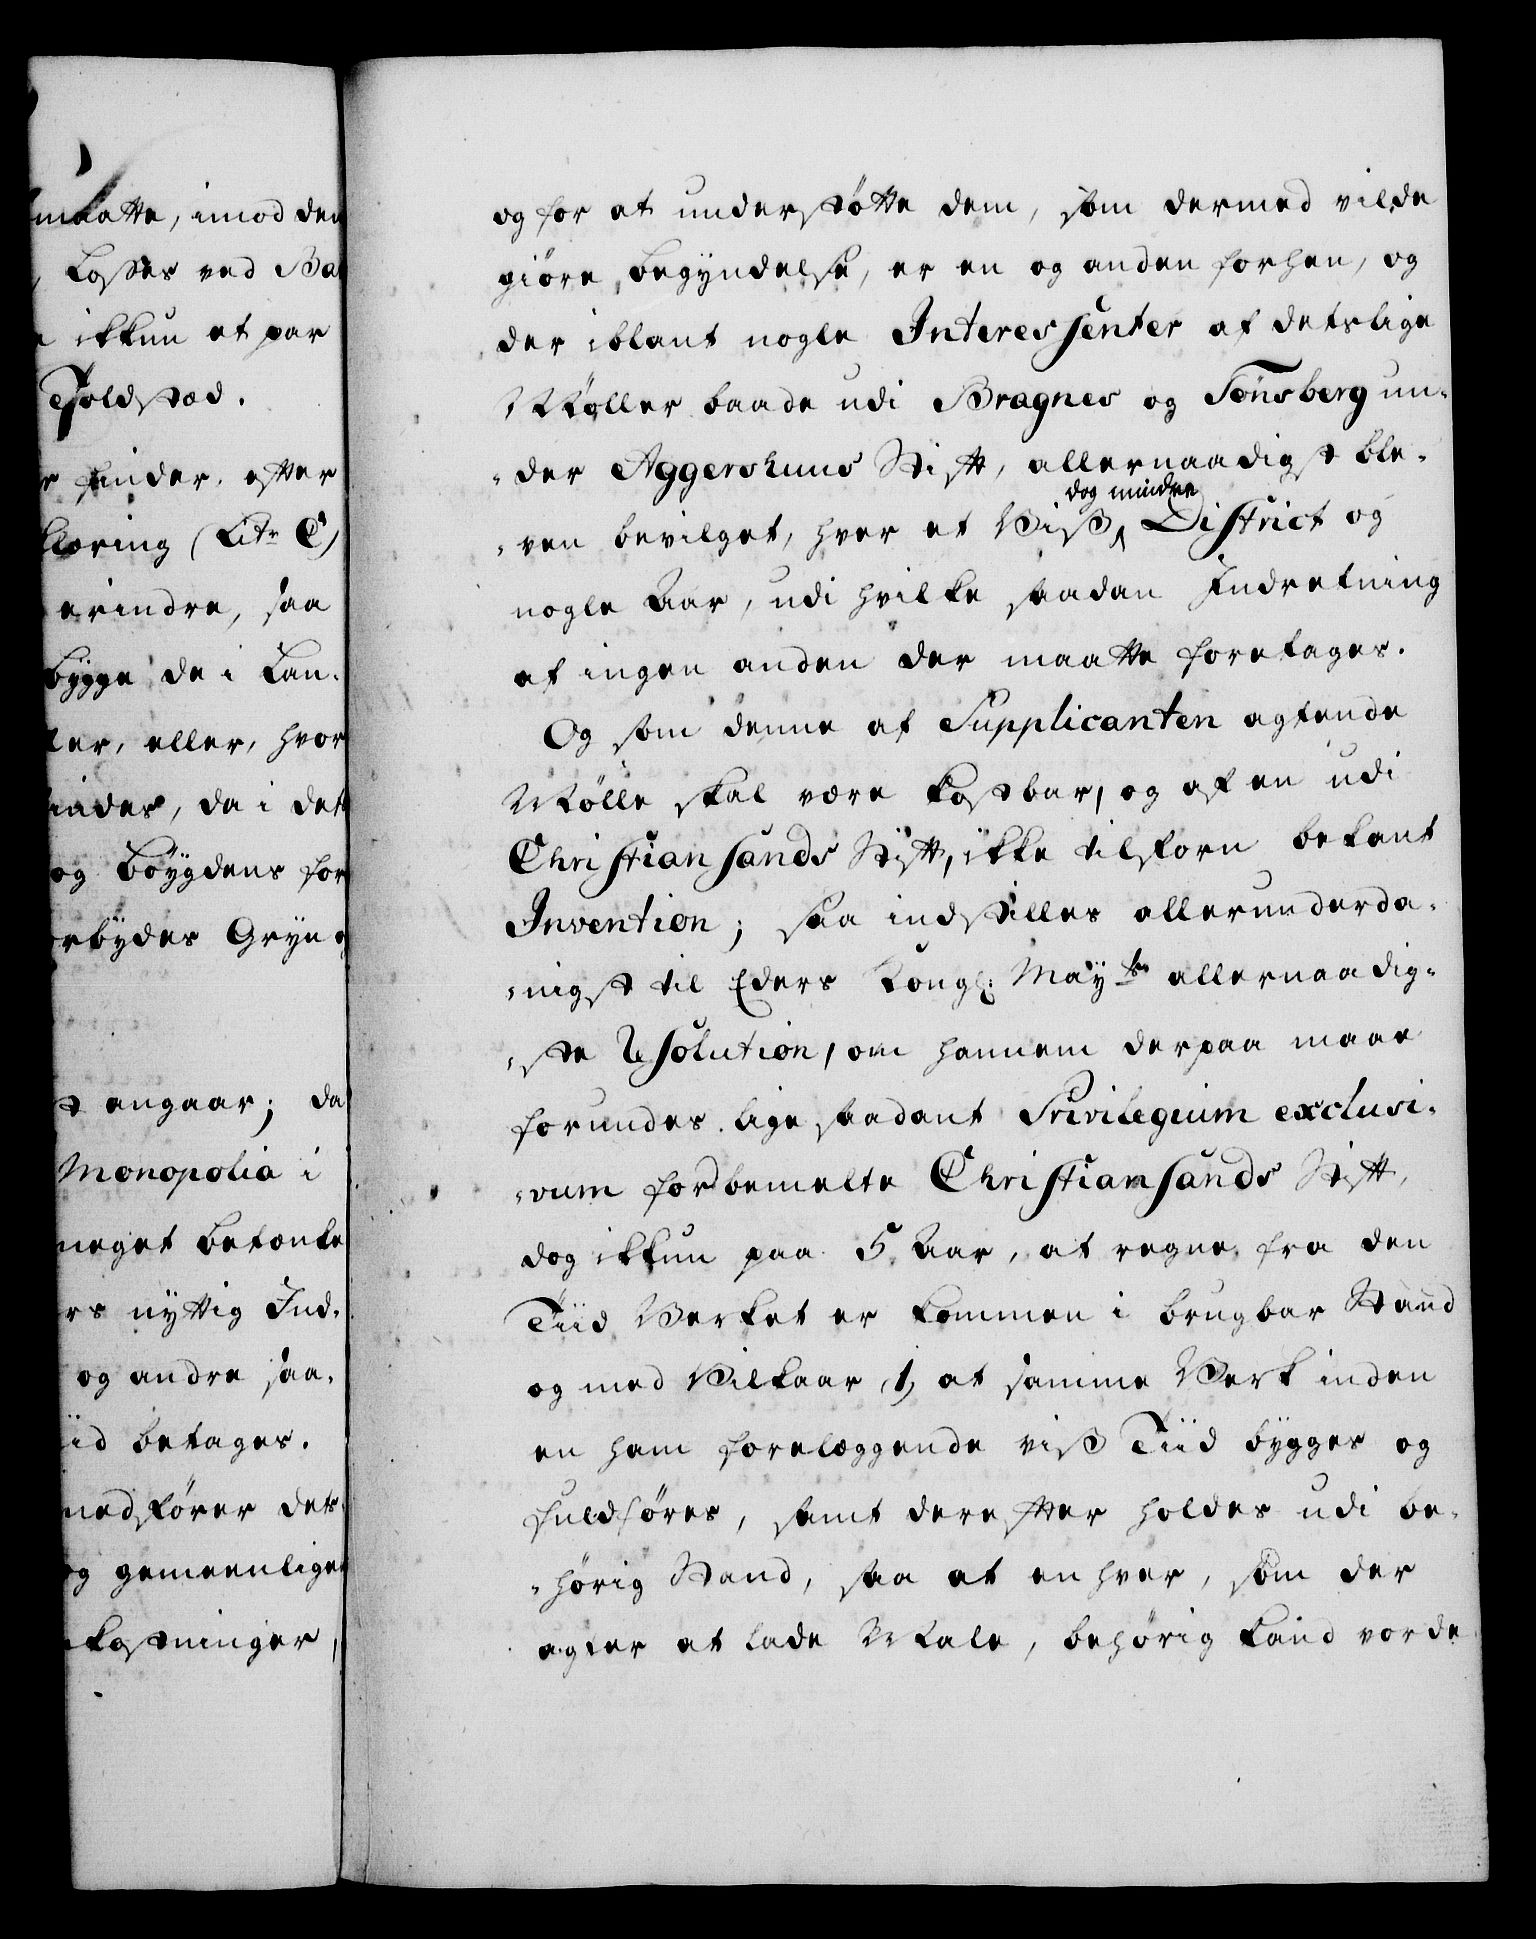 maatte, imod den
Losses ved Ba
ikkun et par
Toldsted.
finder, efter
klæring (Litr C)
erindre, saa
bygge de i Lan-
ler, eller, hvor
indes, da i det
og Böygdens for
orbydes Gryn o
angaar; da
Monopolia i
meget betænke
rs nyttig Ind-
og andre saa-
iid betages.
medförer det
og gemeenligen
kostninger,
og for at understötte dem, som dermed vilde
giöre begyndelse, er en og anden forhen, og
der iblant nogle Interessenter af detslige
Möller baade udi Bragnes og Tönsberg un-
-der Aggershuus Stift, allernaadigst ble-
dog mindre
-ven bevilget, hver et Viss District og
nogle Aar, udi hvilke saadan Indretning
af ingen anden der maatte foretages.
Og som denne af Supplicanten agtende
Mölle skal være kostbar, og af en udi
Christiansands Stift, ikke tilforn bekant
Invention; saa indstilles allerunderda-
-nigst til Eders Kongl: Mayts allernaadig-
-ste Resolution, om hannem derpaa maae
forundes lige saadant Privilegium exclusi-
-vum for bemelte Christiansands Stift,
dog ikkun paa 5 Aar, at regne fra den
Tiid Verket er kommen i brugbar Stand
og med Vilkaar, 1, at samme Verk inden
en ham forelæggende viss Tiid bygges og
fuldföres, samt derefter holdes udi be-
-hörig Stand, saa at enhver, som der
agter at lade Male, behörig kand vorde